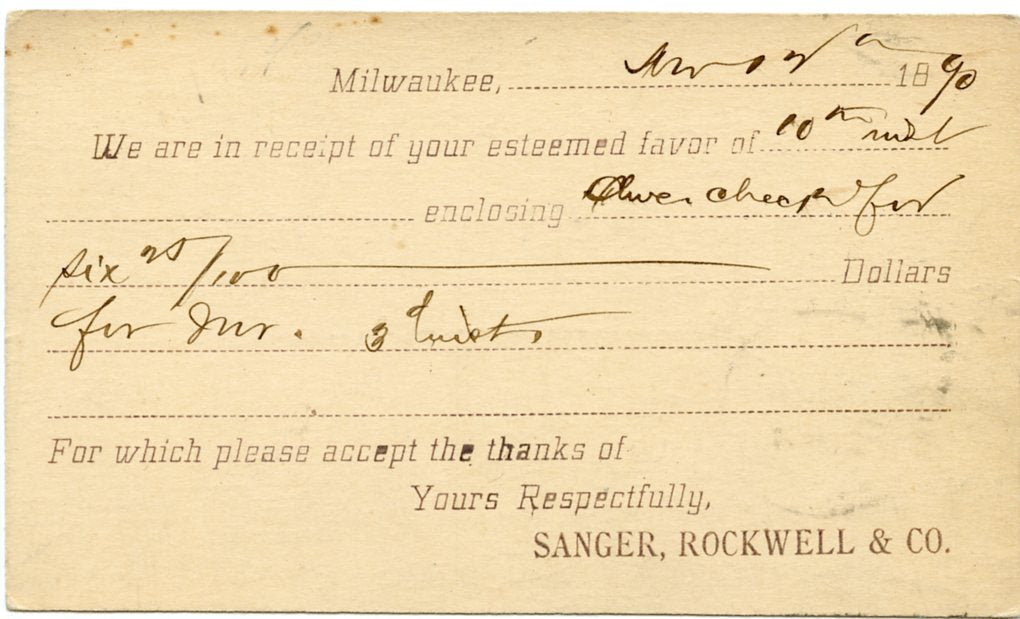 Milwaukee, 1890
We are in receipt of your esteemed favor of 10th inst
enclosing check for
six 25/100 Dollars
for Inv. 3d inst.
For which please accept the thanks of
Yours Respectfully,
SANGER, ROCKWELL & CO.